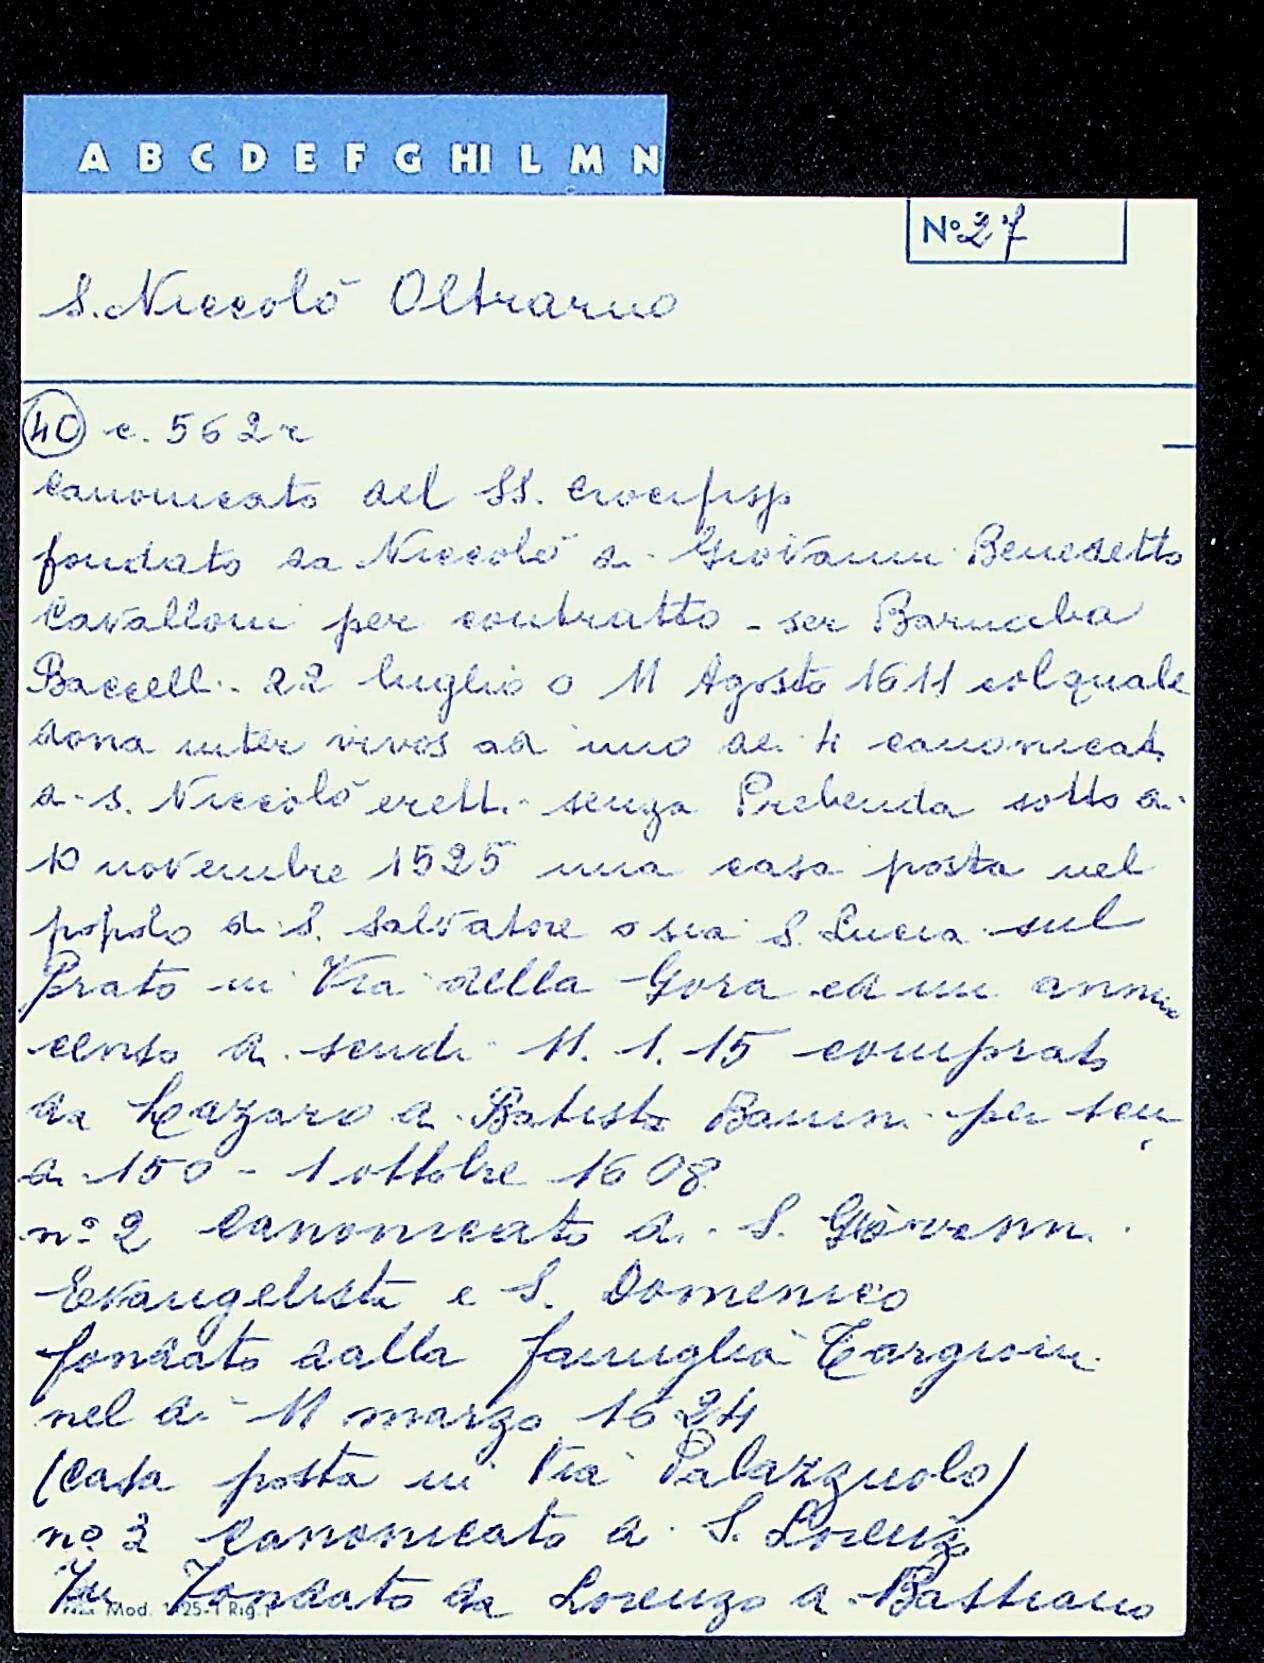 A B C D E F G HI L M N
N° 27
S. Niccolò Oltrarno
40 c. 562r
Canonicato del SS. Crocifisso
fondato da Niccolò di Giovanni Benedetto
Cavalloni per contratto - ser Barnaba
Baccelli - 22 luglio o 11 Agosto 1611 col quale
dona inter vivos ad uno dei 4 canonicati
di S. Niccolò eretti senza Prebenda sotto di
10 novembre 1525 una casa posta nel
popolo di S. Salvatore o sia S. Lucia sul
Prato in Via della Gora ed un annuo
censo di scudi 11. 1. 15 comprato
da Lazaro di Batista per scu
di 150 - 1 ottobre 1608
n° 2 Canonicato di S. Giovanni
Evangelista e S. Domenico
fondato dalla famiglia Targioni
nel dì 11 marzo 1624
(casa posta in Via Palazzuolo)
n° 3 Canonicato di S. Lorenzo
Fondato da Lorenzo di Bastiano
Mod. 1125-1 Rig. 1